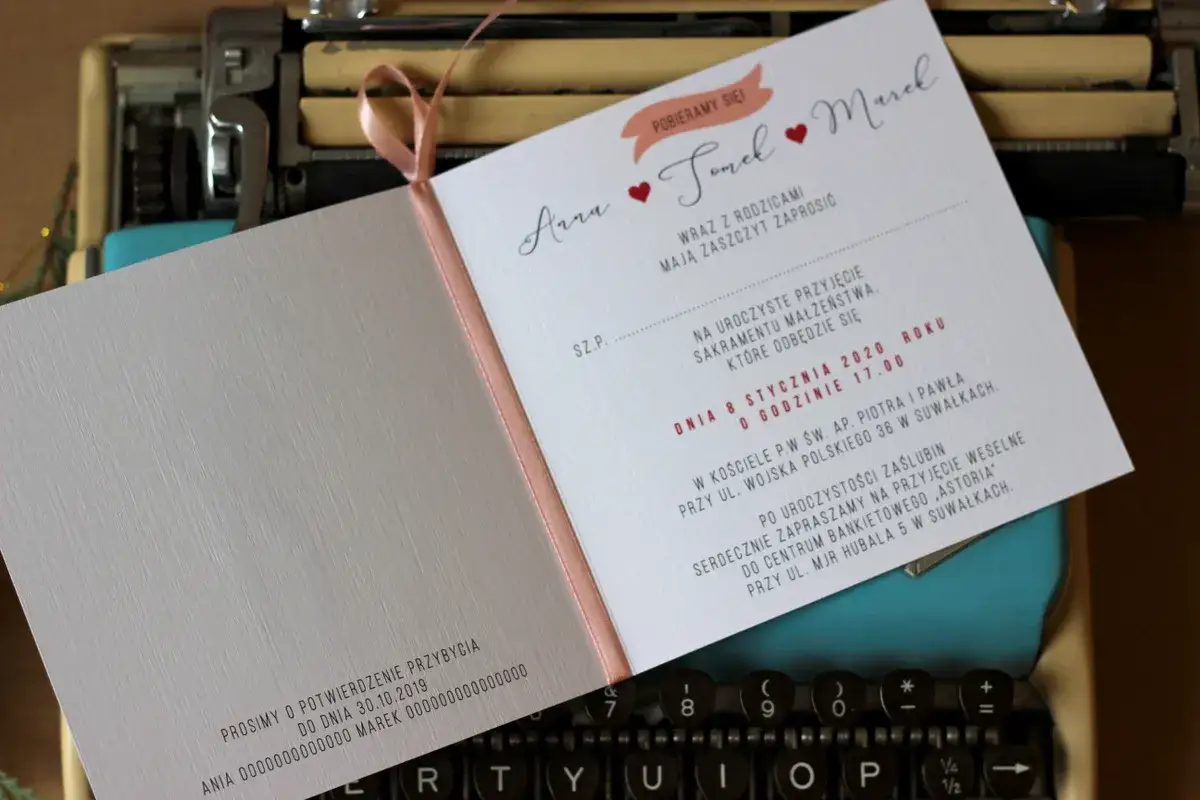 POBIERAMY SIĘ!
Anna Tomek Marek
WRAZ Z RODZICAMI
MAJĄ ZASZCZYT ZAPROSIĆ
SZ.P. ........................................
NA UROCZYSTE PRZYJĘCIE
SAKRAMENTU MAŁŻEŃSTWA,
KTÓRE ODBĘDZIE SIĘ
DNIA 8 STYCZNIA 2020 ROKU
O GODZINIE 17.00
W KOŚCIELE P.W ŚW. AP. PIOTRA I PAWŁA
PRZY UL. WOJSKA POLSKIEGO 36 W SUWAŁKACH.
PO UROCZYSTOŚCI ZAŚLUBIN
SERDECZNIE ZAPRASZAMY NA PRZYJĘCIE WESELNE
DO CENTRUM BANKIETOWEGO „ASTORIA"
PRZY UL. MJR HUBALA 5 W SUWAŁKACH.
PROSIMY O POTWIERDZENIE PRZYBYCIA
DO DNIA 30.10.2019
ANIA 000000000000 MAREK 00000000000000
& 7 ' 8 ( 9 ) 0 * - + =
E R T Y U I O P ¼ ½ →